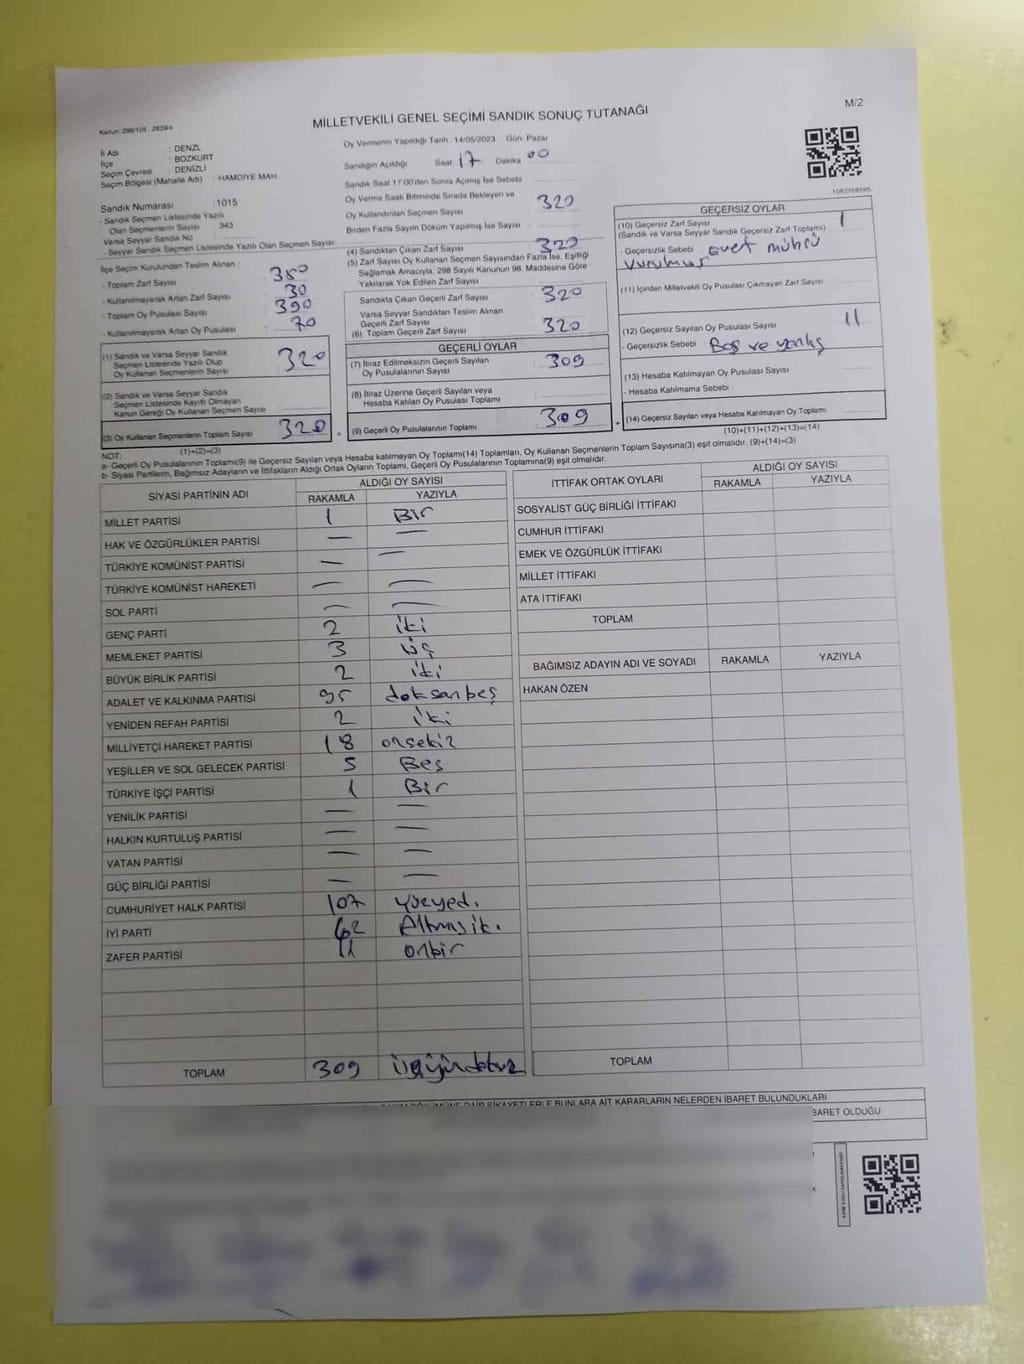 M/2
Kanun: 298/105 ; 2839/4
MİLLETVEKİLİ GENEL SEÇİMİ SANDIK SONUÇ TUTANAĞI
İl Adı : DENZL
İlçe : BOZKURT
Seçim Çevresi : DENİZLİ
Seçim Bölgesi (Mahalle Adı) : HAMDİYE MAH.
Sandık Numarası : 1015
- Sandık Seçmen Listesinde Yazılı
Olan Seçmenlerin Sayısı : 343
Varsa Seyyar Sandık No
- Seyyar Sandık Seçmen Listesinde Yazılı Olan Seçmen Sayısı
İlçe Seçim Kurulundan Teslim Alınan :
- Toplam Zarf Sayısı 350
- Kullanılmayarak Artan Zarf Sayısı 30
- Toplam Oy Pusulası Sayısı 390
- Kullanılmayarak Artan Oy Pusulası 70
(1) Sandık ve Varsa Seyyar Sandık
Seçmen Listesinde Yazılı Olup
Oy Kullanan Seçmenlerin Sayısı 320
(2) Sandık ve Varsa Seyyar Sandık
Seçmen Listesinde Kayıtlı Olmayan
Kanun Gereği Oy Kullanan Seçmen Sayısı
(3) Oy Kullanan Seçmenlerin Toplam Sayısı 320
(1)+(2)=(3)
Oy Vermenin Yapıldığı Tarih : 14/05/2023 Gün: Pazar
Sandığın Açıldığı Saat: 17 Dakika 00
Sandık Saat 17:00'den Sonra Açılmış İse Sebebi :
Oy Verme Saati Bitiminde Sırada Bekleyen ve
Oy Kullandırılan Seçmen Sayısı 320
Birden Fazla Sayım Döküm Yapılmış İse Sayısı :
(4) Sandıktan Çıkan Zarf Sayısı 320
(5) Zarf Sayısı Oy Kullanan Seçmen Sayısından Fazla İse, Eşitliği
Sağlamak Amacıyla, 298 Sayılı Kanunun 98. Maddesine Göre
Yakılarak Yok Edilen Zarf Sayısı :
Sandıkta Çıkan Geçerli Zarf Sayısı 320
Varsa Seyyar Sandıktan Teslim Alınan
Geçerli Zarf Sayısı
(6) Toplam Geçerli Zarf Sayısı 320
GEÇERLİ OYLAR
(7) İtiraz Edilmeksizin Geçerli Sayılan
Oy Pusulalarının Sayısı 309
(8) İtiraz Üzerine Geçerli Sayılan veya
Hesaba Katılan Oy Pusulası Toplamı
= (9) Geçerli Oy Pusulalarının Toplamı 309
1083768595
GEÇERSİZ OYLAR
(10) Geçersiz Zarf Sayısı 1
(Sandık ve Varsa Seyyar Sandık Geçersiz Zarf Toplamı)
- Geçersizlik Sebebi : evet mührü
vurulmuş
(11) İçinden Milletvekili Oy Pusulası Çıkmayan Zarf Sayısı :
(12) Geçersiz Sayılan Oy Pusulası Sayısı 11
- Geçersizlik Sebebi : Boş ve yanlış
(13) Hesaba Katılmayan Oy Pusulası Sayısı :
- Hesaba Katılmama Sebebi :
+ (14) Geçersiz Sayılan veya Hesaba Katılmayan Oy Toplamı :
(10)+(11)+(12)+(13)=(14)
NOT:
a- Geçerli Oy Pusulalarının Toplamı(9) ile Geçersiz Sayılan veya Hesaba katılmayan Oy Toplamı(14) Toplamları, Oy Kullanan Seçmenlerin Toplam Sayısına(3) eşit olmalıdır. (9)+(14)=(3)
b- Siyasi Partilerin, Bağımsız Adayların ve İttifakların Aldığı Ortak Oyların Toplamı, Geçerli Oy Pusulalarının Toplamına(9) eşit olmalıdır.
SİYASİ PARTİNİN ADI ALDIĞI OY SAYISI
RAKAMLA YAZIYLA
MİLLET PARTİSİ 1 Bir
HAK VE ÖZGÜRLÜKLER PARTİSİ — —
TÜRKİYE KOMÜNİST PARTİSİ — —
TÜRKİYE KOMÜNİST HAREKETİ — —
SOL PARTİ — —
GENÇ PARTİ 2 iki
MEMLEKET PARTİSİ 3 üç
BÜYÜK BİRLİK PARTİSİ 2 iki
ADALET VE KALKINMA PARTİSİ 95 doksanbeş
YENİDEN REFAH PARTİSİ 2 iki
MİLLİYETÇİ HAREKET PARTİSİ 18 onsekiz
YEŞİLLER VE SOL GELECEK PARTİSİ 5 Beş
TÜRKİYE İŞÇİ PARTİSİ 1 Bir
YENİLİK PARTİSİ — —
HALKIN KURTULUŞ PARTİSİ — —
VATAN PARTİSİ — —
GÜÇ BİRLİĞİ PARTİSİ — —
CUMHURİYET HALK PARTİSİ 107 yüzyedi
İYİ PARTİ 62 Altmışiki
ZAFER PARTİSİ 11 onbir
TOPLAM 309 üçyüzdokuz
İTTİFAK ORTAK OYLARI ALDIĞI OY SAYISI
RAKAMLA YAZIYLA
SOSYALİST GÜÇ BİRLİĞİ İTTİFAKI
CUMHUR İTTİFAKI
EMEK VE ÖZGÜRLÜK İTTİFAKI
MİLLET İTTİFAKI
ATA İTTİFAKI
TOPLAM
BAĞIMSIZ ADAYIN ADI VE SOYADI RAKAMLA YAZIYLA
HAKAN ÖZEN
TOPLAM
DÖKÜMÜNE DAİR ŞİKAYETLERLE BUNLARA AİT KARARLARIN NELERDEN İBARET BULUNDUKLARI
BARET OLDUĞU